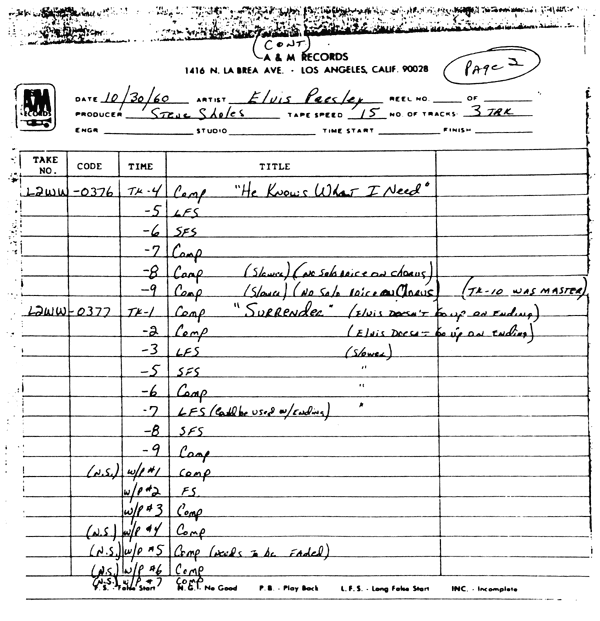 (CONT)
A & M RECORDS
1416 N. LA BREA AVE. · LOS ANGELES, CALIF. 90028
PAGE 2
A&M RECORDS
DATE 10/30/60 ARTIST Elvis Presley REEL NO. OF
PRODUCER Steve Sholes TAPE SPEED 15 NO. OF TRACKS 3 TRK
ENGR STUDIO TIME START FINISH
TAKE NO. CODE TIME TITLE
L2WW -0376 TK-4 Comp "He Knows What I Need"
-5 LFS
-6 SFS
-7 Comp
-8 Comp (Slower) (No Solo Voice on Chorus)
-9 Comp (Slower) (No Solo Voice on Chorus) (TK-10 WAS MASTER)
L2WW -0377 TK-1 Comp "Surrender" (Elvis Doesn't Go up on Ending)
-2 Comp (Elvis Doesn't Go up on Ending)
-3 LFS (Slower)
-5 SFS "
-6 Comp "
-7 LFS (Could be used w/Ending) "
-8 SFS
-9 Comp
(N.S.) w/P #1 Comp
w/P #2 FS.
w/P #3 Comp
(N.S.) w/P #4 Comp
(N.S.) w/P #5 Comp (needs to be Faded)
(N.S.) w/P #6 Comp
(N.S.) w/P #7 Comp
F.S. - False Start N.G. - No Good P.B. - Play Back L.F.S. - Long False Start INC. - Incomplete